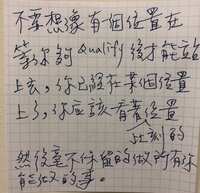 不要想像有個位置在
等你夠 qualify 後才能站
上去，你已經在某個位置
上了，你應該看著位置
此刻的
然後毫不保留的做所有你
能做的事。